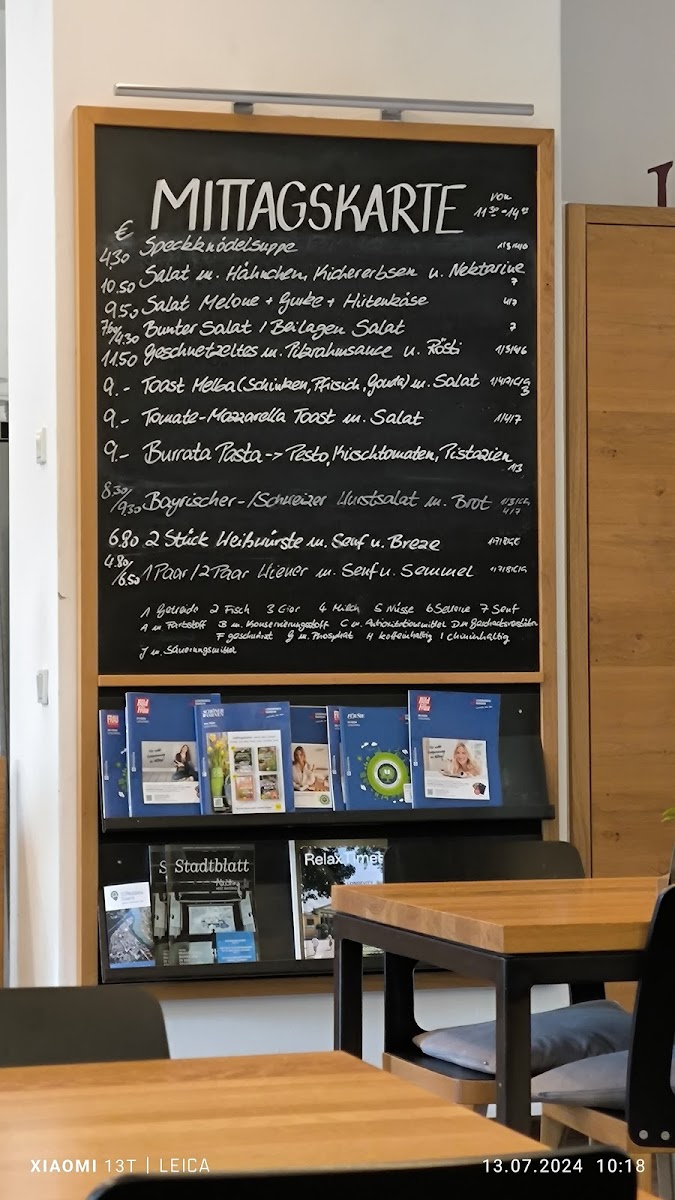 MITTAGSKARTE
von
11³⁰-14⁰⁰
€
4,30 Speckknödelsuppe
10.50 Salat m. Hähnchen, Kichererbsen u. Nektarine
7
9,50 Salat Melone + Gurke + Hirtenkäse 4/7
7,80/4,30 Bunter Salat / Beilagen Salat 7
11,50 geschnetzeltes m. Pilzrahmsauce u. Rösti 1/3/4/6
9.- Toast Melba (Schinken, Pfirsich, Gouda) m. Salat
3
9.- Tomate-Mozzarella Toast m. Salat 1/4/7
9.- Burrata Pasta -> Pesto, Kirschtomaten, Pistazien
1/3
8,30/9,30 Bayrischer-/Schweizer Wurstsalat m. Brot
4/7
6.80 2 Stück Weißwürste m. Senf u. Breze
4.80/6.50 1 Paar/2 Paar Wiener m. Senf u. Semmel
1 Getreide 2 Fisch 3 Eier 4 Milch 5 Nüsse 6 Sellerie 7 Senf
A m. Farbstoff B m. Konservierungsstoff C m. Antioxidationsmittel D m. Geschmacksverstärker
F geschwärzt G m. Phosphat H koffeinhaltig I chininhaltig
J m. Säuerungsmittel
SCHÖNER
WOHNEN
FÜR SIE
Stadtblatt
RelaxTimes
XIAOMI 13T | LEICA
13.07.2024 10:18